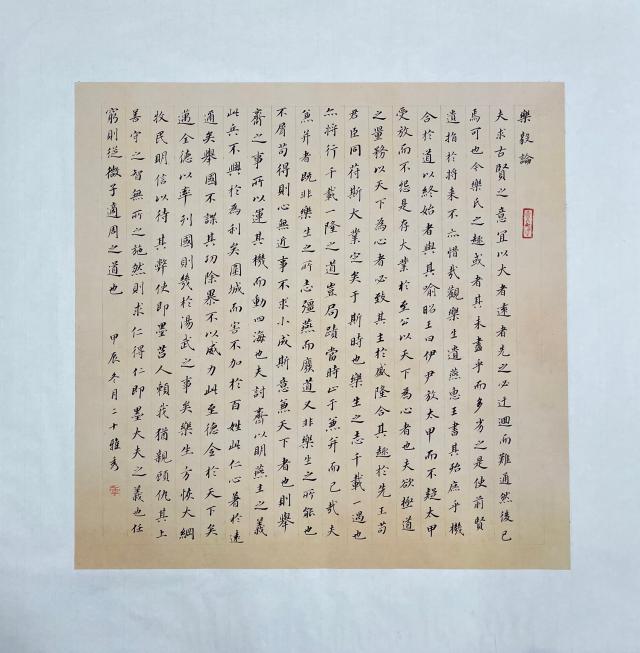 樂毅論
夫求古賢之意宜以大者遠者先之必迂迴而難通然後已
焉可也今樂氏之趣或者其未盡乎而多劣之是使前賢
遺指於將来不亦惜哉觀樂生遺燕惠王書其殆庶乎機
合於道以終始者與其喻昭王曰伊尹放太甲而不疑太甲
受放而不怨是存大業於至公以天下為心者也夫欲極道
之量務以天下為心者必致其主於盛隆合其趣於先王苟
君臣同苻斯大業定矣于斯時也樂生之志千載一遇也
亦將行千載一隆之道豈局蹟當時止于兼并而已哉夫
兼并者既非樂生之所志彊燕而廢道又非樂生之所能也
不屑苟得則心無近事不求小成斯意兼天下者也則舉
齊之事所以運其機而動四海也夫討齊以明燕主之義
此兵不興於為利矣圍城而害不加於百姓此仁心著於遠
通矣舉國不謀其功除暴不以威力此至德全於天下矣
邁全德以率列國則幾於湯武之事矣樂生方恢大綱
牧民明信以待其弊使即墨莒人賴我猶親顧仇其上
善守之智無所之施然則求仁得仁即墨大夫之義也任
窮則從微子適周之道也 甲辰冬月二十雅秀